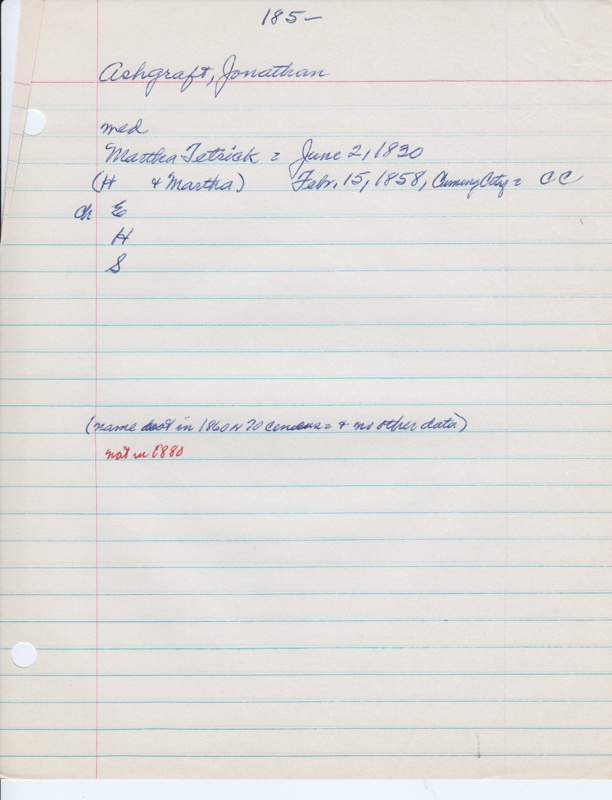 185-
Ashgraft, Jonathan
med
Martha Tetrick = June 2, 1830
(H & Martha) Febr. 15, 1858, Cuming City = CC
ch E
H
S
(name not in 1860 or 70 census = & no other data)
not in 1880